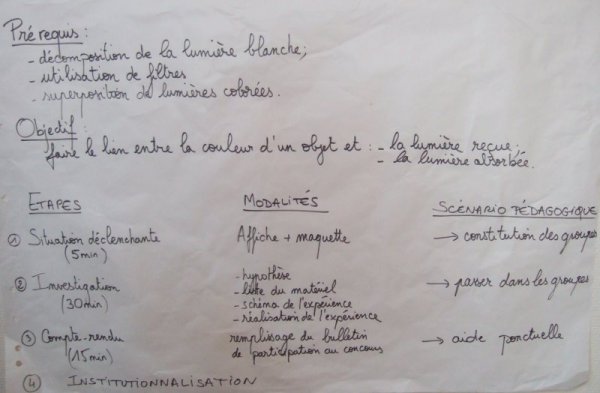 Prérequis :
- décomposition de la lumière blanche ;
- utilisation de filtres
- superposition de lumières colorées.
Objectif :
faire le lien entre la couleur d'un objet et : - la lumière reçue ;
- la lumière absorbée.
ETAPES MODALITÉS SCÉNARIO PÉDAGOGIQUE
① Situation déclenchante Affiche + maquette → constitution des groupes
(5min)
② Investigation - hypothèse → passer dans les groupes
(30min) - liste du matériel
- schéma de l'expérience
- réalisation de l'expérience
③ Compte-rendu remplissage du bulletin → aide ponctuelle
(15min) de participation au concours
④ INSTITUTIONNALISATION